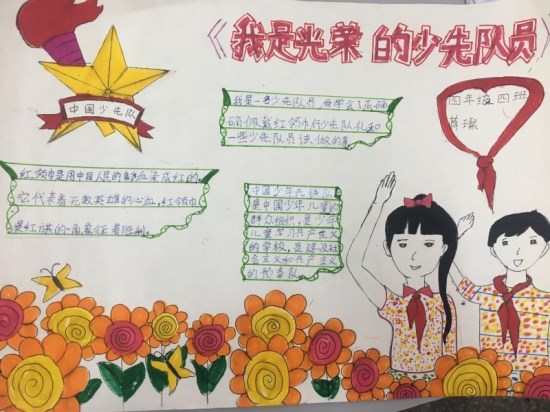 《我是光荣的少先队员
中国少先队
四年级四班
我是一名少先队员,我学会了正确
确佩戴红领巾行少先队礼和
一些少先队员该做的事
红领巾是用中国人民的鲜血染成红的,
它代表着无数英雄的心血,红领巾
是红旗的一角象征着胜利。
中国少年先锋队
是中国少年儿童的
群众组织,是少年
儿童学习共产主义
的学校,是建设社
会主义和共产主义
的预备队